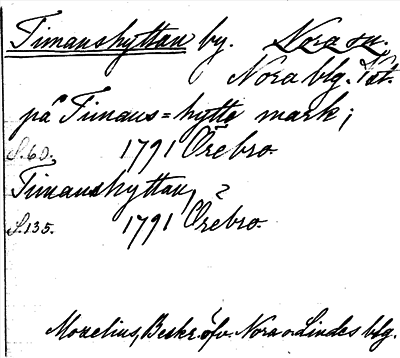 Timanshyttan by. Nora sn.
Nora blg. Vst.
på Timans=hytte mark;
S.60. 1791 Örebro.
Timanshyttan, ?
S.135. 1791 Örebro.
Mozelius, Beskr. öfv. Nora o. Lindes blg.